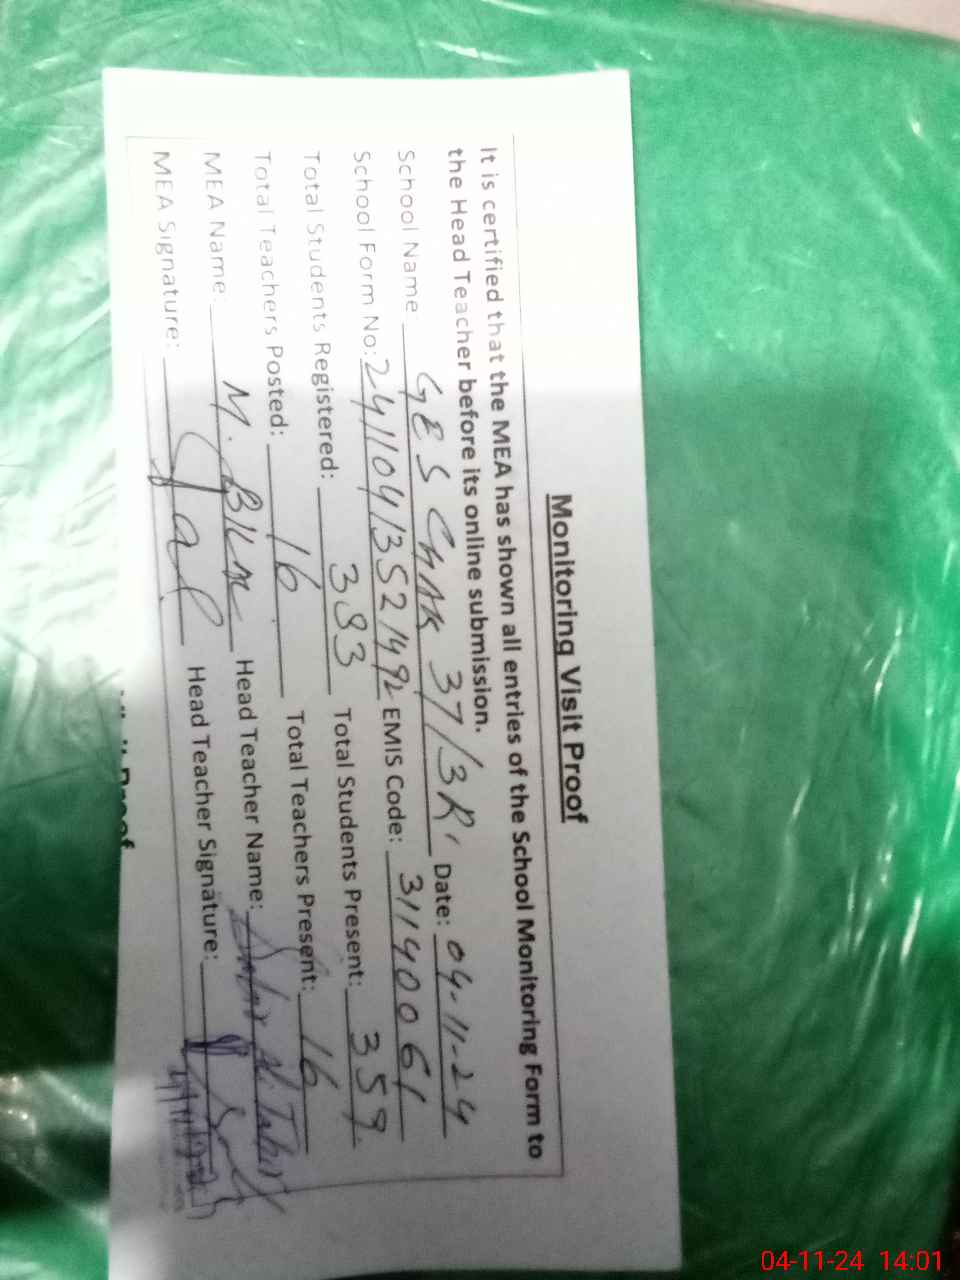 Monitoring Visit Proof
It is certified that the MEA has shown all entries of the School Monitoring Form to
the Head Teacher before its online submission.
School Name GES CHAK 37/3R, Date: 04-11-24
School Form No: 24110413521492 EMIS Code: 31140061
Total Students Registered: 383 Total Students Present: 359
Total Teachers Posted: 16 Total Teachers Present: 16
MEA Name: M. Head Teacher Name:
MEA Signature: Head Teacher Signature:
04-11-24 14:01